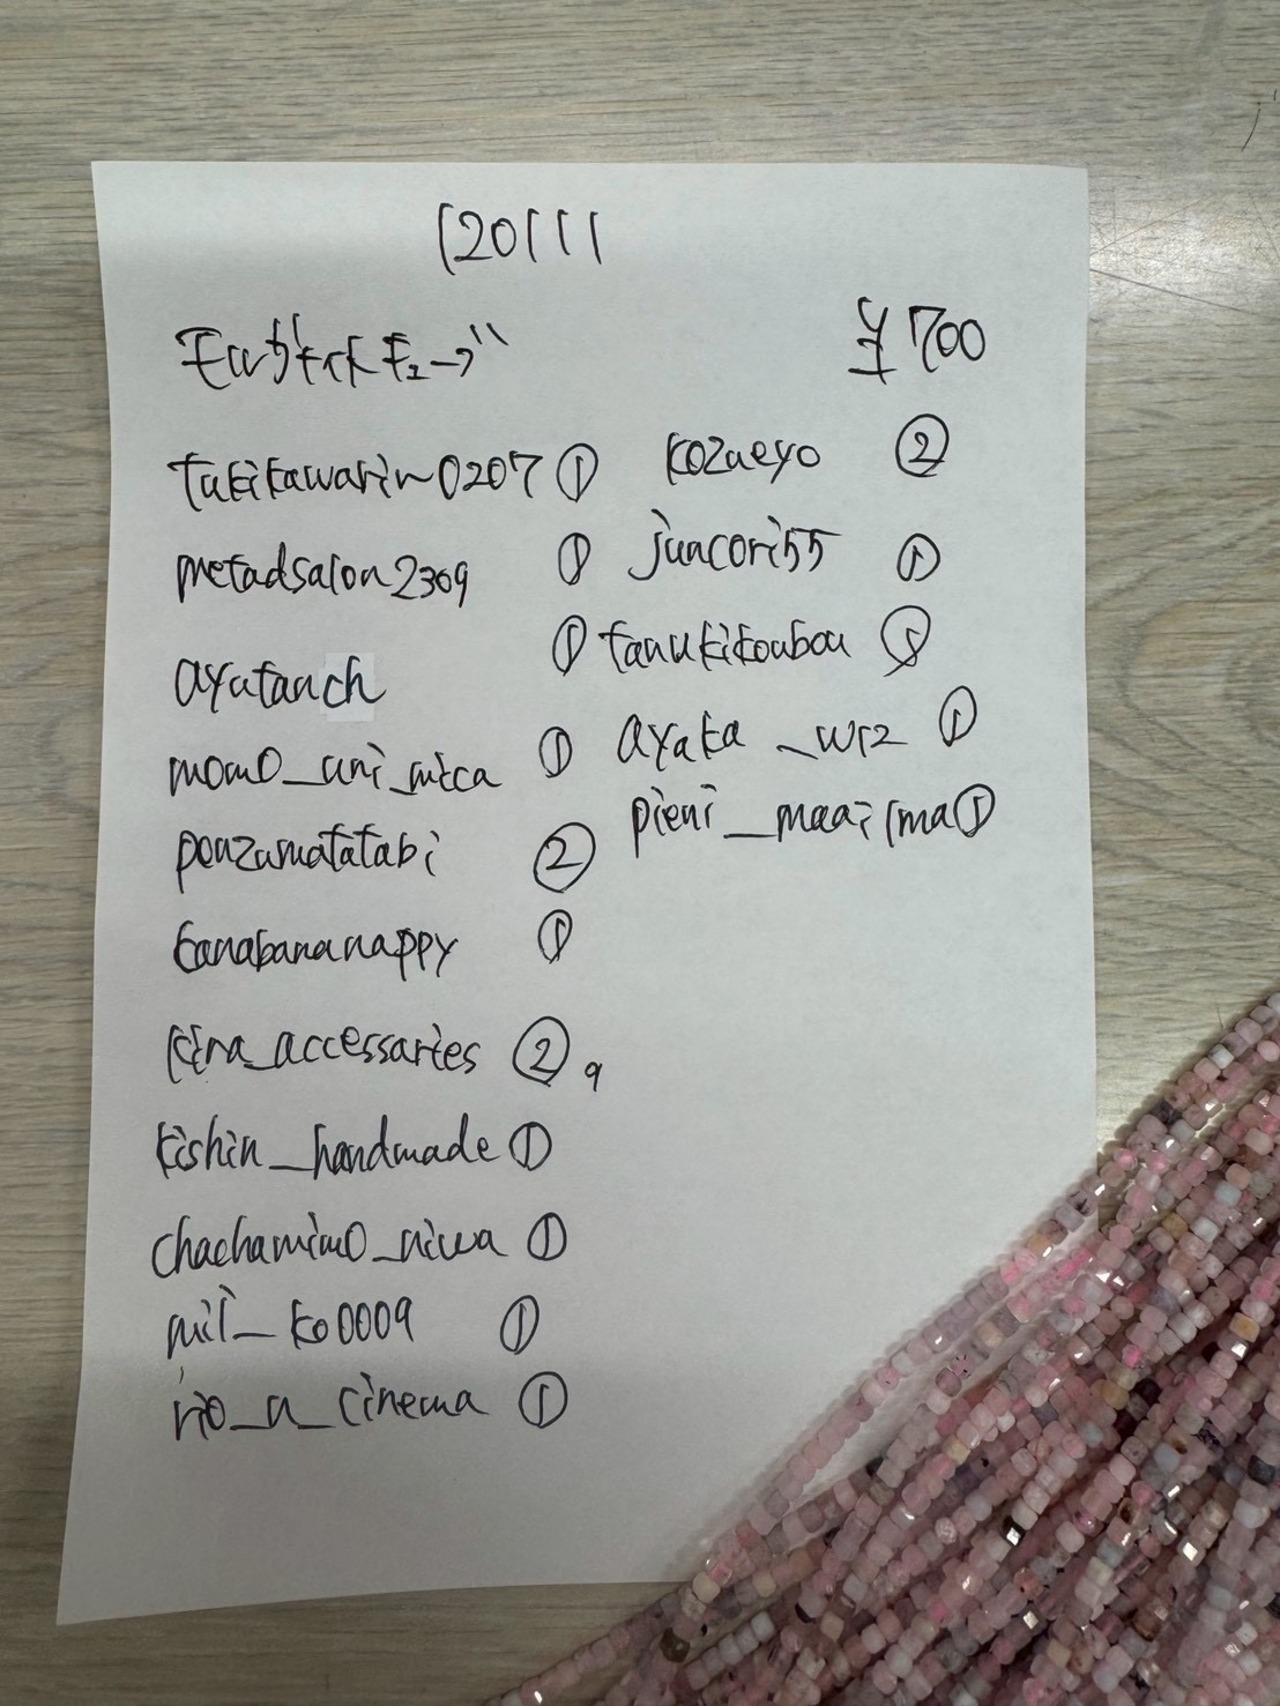 120111
モルガナイトキューブ ¥700
takikawarin0207 ①
metadsalon2309 ①
ayatanch ①
momo_uni_mica ①
ponzumatatabi ②
tanabananappy ①
kira_accessaries ②
9
kishin_handmade ①
chachamimo_niwa ①
mil_ko0009 ①
rio_a_cinema ①
kozueyo ②
juncori55 ①
tanukikoubou ①
ayaka_wrz ①
pieni_maailma ①